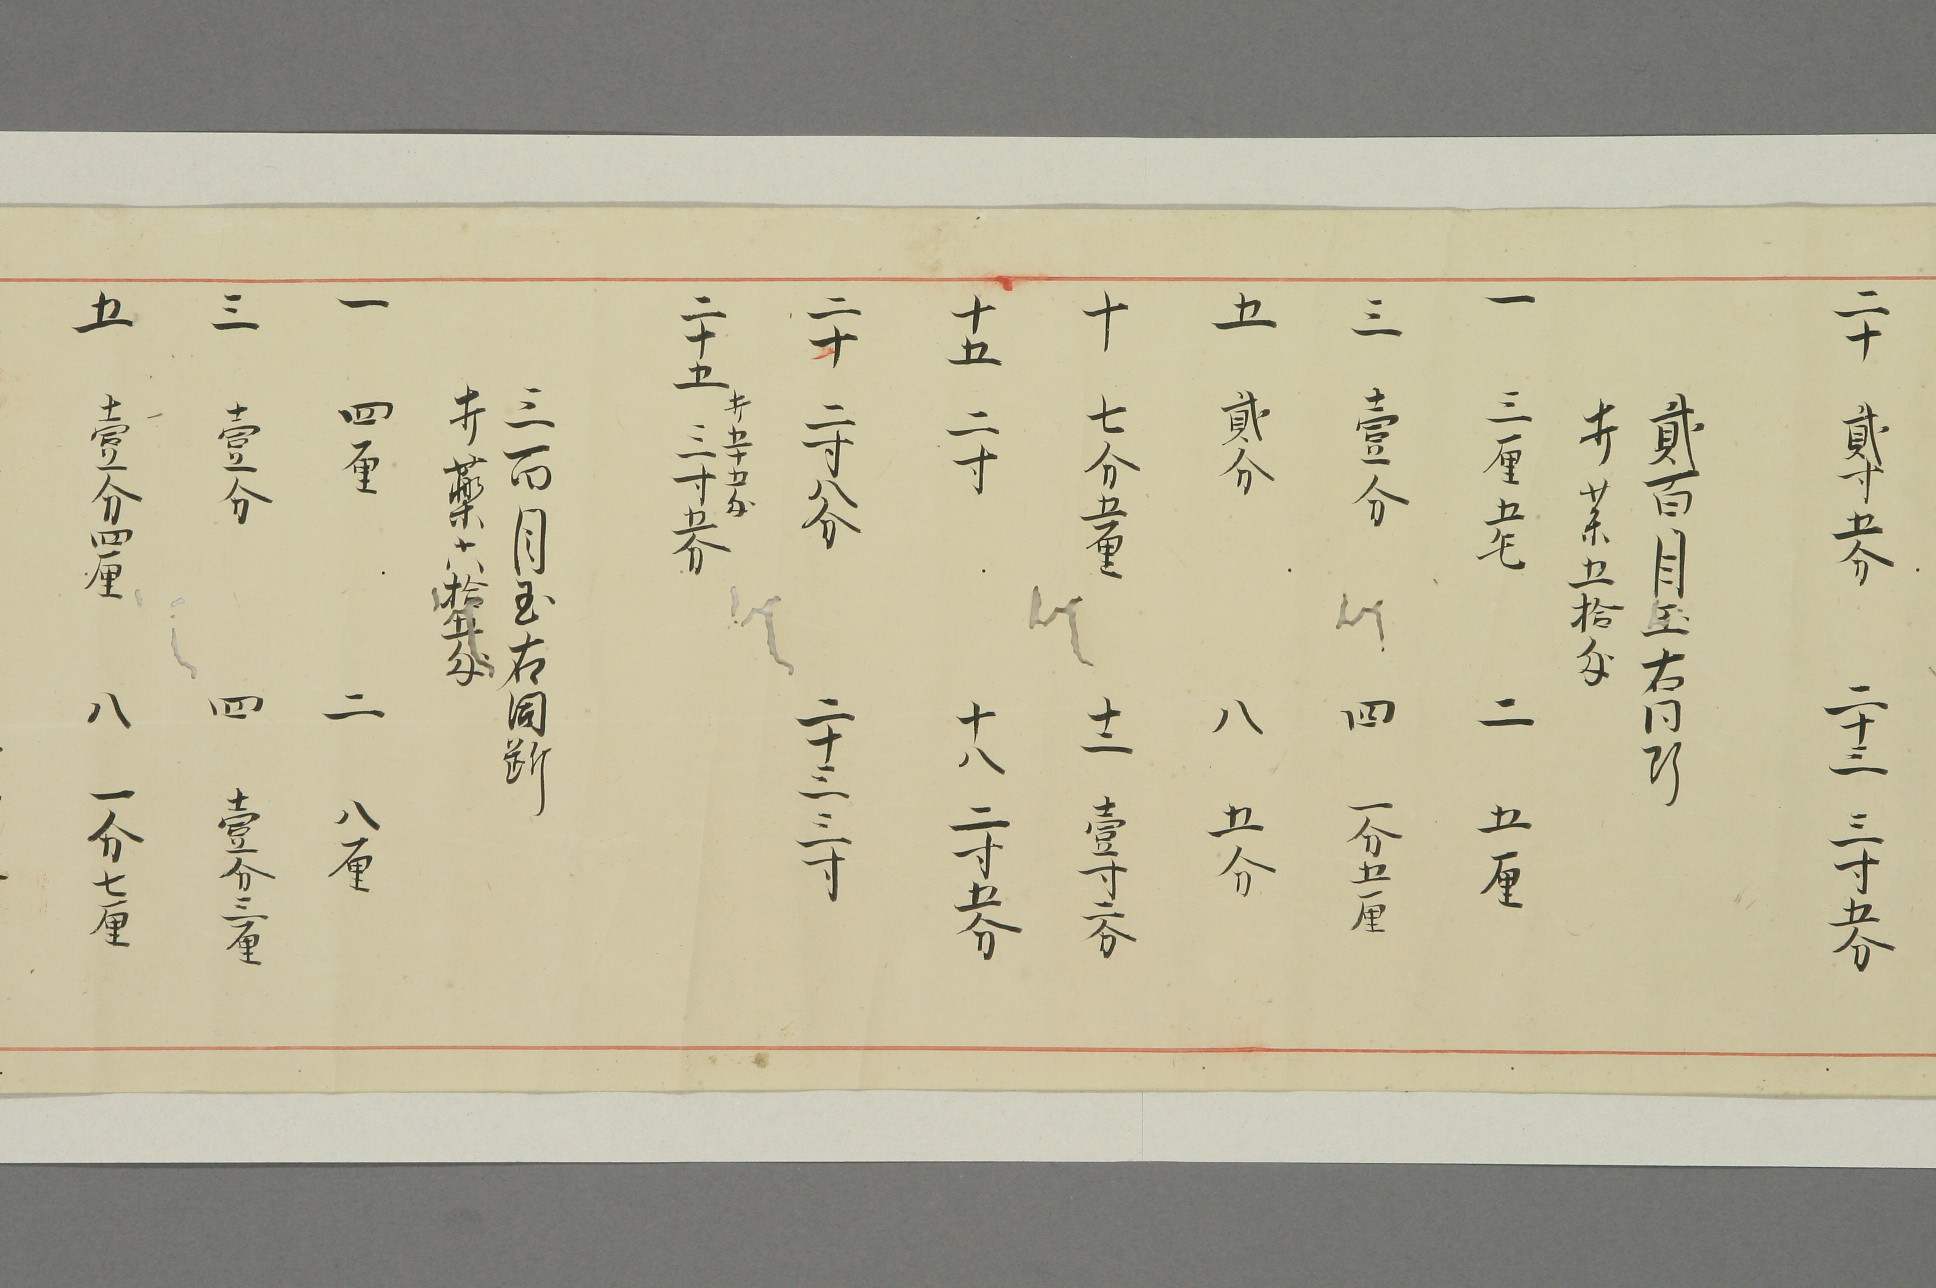 二十 貳寸五分 二十三 三寸五分
貳百目玉右同断
井 薬五拾匁
一 三厘五毛 二 五厘
三 壹分 四 一分五厘
五 貳分 八 五分
十 七分五厘 十二 壹寸二分
十五 二寸 十八 二寸五分
二十 二寸八分 二十三 三寸
井五十五匁
二十五 三寸五分
三百目玉右同断
井 薬六拾五匁
一 四厘 二 八厘
三 壹分 四 壹分三厘
五 壹分四厘 八 一分七厘